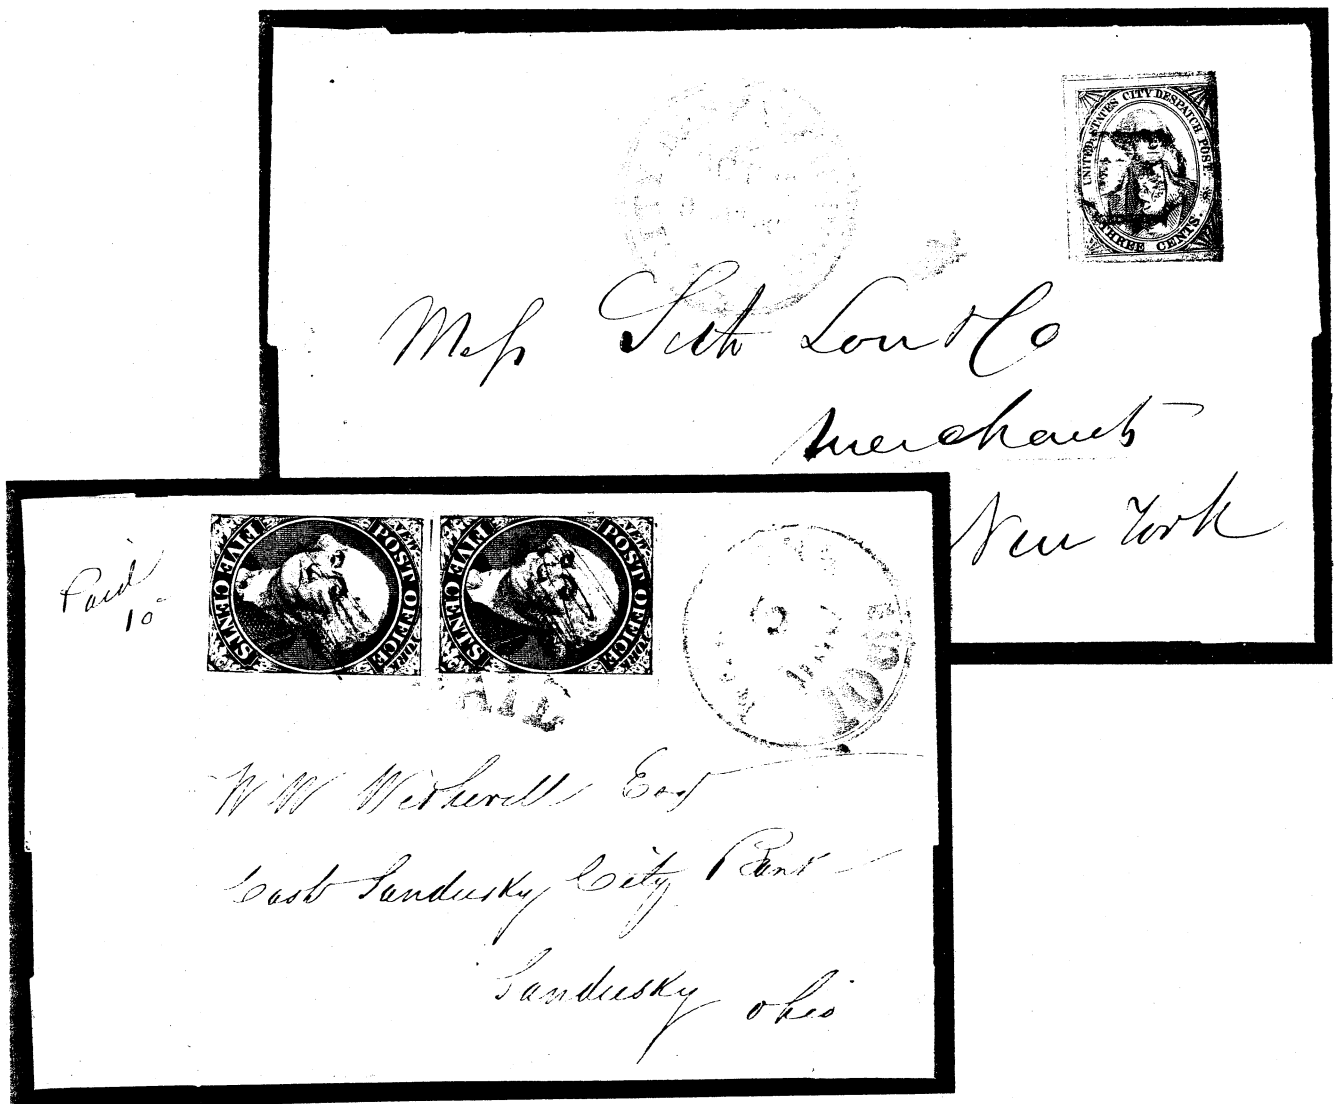 UNITED STATES CITY DESPATCH POST.
THREE CENTS.
Mess Seth Low & Co
Merchants
New York
Paid
10
POST OFFICE
FIVE CENTS
NEW YORK
POST OFFICE
FIVE CENTS
NEW YORK
PAID
YORK
W W Wetherell Esq
Cash Sandusky City Bank
Sandusky Ohio